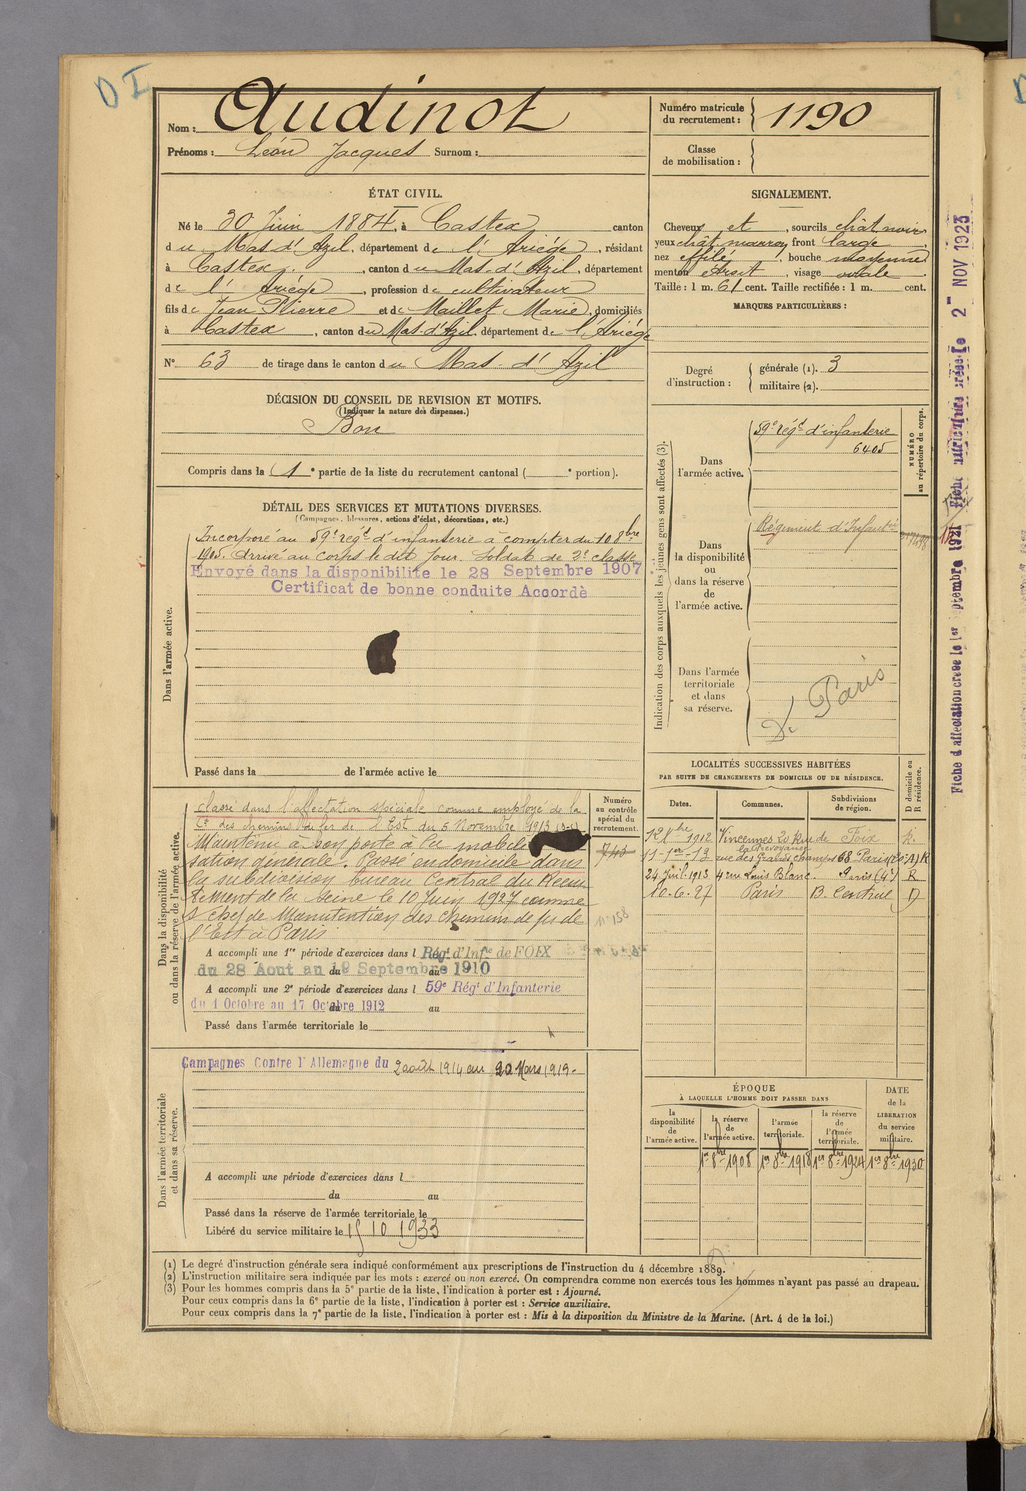 D I
Nom : Audinot
Prénoms : Léon Jacques Surnom :
Numéro matricule du recrutement : 1190
Classe de mobilisation :
ÉTAT CIVIL.
Né le 30 Juin 1884, à Castex canton
du Mas d'Azil, département de l'Ariège, résidant
à Castex, canton du Mas-d'Azil, département
de l'Ariège, profession de cultivateur
fils de Jean Pierre et de Maillet Marie, domiciliés
à Castex, canton du Mas-d'Azil, département de l'Ariège
N° 63 de tirage dans le canton du Mas-d'Azil
SIGNALEMENT.
Cheveux et, sourcils chât noir
yeux chât marron, front large,
nez effilé, bouche moyenne
menton étroit, visage ovale.
Taille : 1 m. 61 cent. Taille rectifiée : 1 m. cent.
MARQUES PARTICULIÈRES :
Degré d'instruction : générale (1). 3
militaire (2).
DÉCISION DU CONSEIL DE REVISION ET MOTIFS.
(Indiquer la nature des dispenses.)
Bon
Compris dans la 1e partie de la liste du recrutement cantonal ( e portion).
DÉTAIL DES SERVICES ET MUTATIONS DIVERSES.
(Campagnes, blessures, actions d'éclat, décorations, etc.)
Dans l'armée active.
Incorporé au 59e régt d'infanterie à compter du 10 8bre
1905. Arrivé au corps le dit jour. Soldat de 2e classe
Envoyé dans la disponibilite le 28 Septembre 1907
Certificat de bonne conduite Accordè
Passé dans la de l'armée active le
Indication des corps auxquels les jeunes gens sont affectés (3).
NUMÉRO au répertoire du corps.
Dans l'armée active.
59e régt d'infanterie
6405
Dans la disponibilité ou dans la réserve de l'armée active.
Régiment d'Infantie
Dans l'armée territoriale et dans sa réserve.
Paris
Dans la disponibilité ou dans la réserve de l'armée active.
Classé dans l'affectation spéciale comme employé de la
Cie des chemins de fer de l'Est du 6 Novembre 1913
Maintenu à son poste à la mobili
sation générale. Passé en domicile dans
la subdivision bureau Central du Recru
tement de la Seine le 10 Juin 1927 comme
s chef de Manutention des chemin de fer de
l'Est à Paris
A accompli une 1re période d'exercices dans l Régt d'Infie de FOIX
du 28 Aout au 19 Septembre 1910
A accompli une 2e période d'exercices dans l 59e Régt d'Infanterie
du 1 Octobre au 17 Octobre 1912 au
Passé dans l'armée territoriale le
Numéro au contrôle spécial du recrutement.
743
n° 158
LOCALITÉS SUCCESSIVES HABITÉES
PAR SUITE DE CHANGEMENTS DE DOMICILE OU DE RÉSIDENCE.
D domicile ou R résidence.
Dates. Communes. Subdivisions de région.
12 Xbre 1912 Vincennes 20 Rue de la Prévoyance Foix R.
11-1er-13 rue des Grands Champs 68 Paris (20e) R
24 Juil. 1913 4 rue Louis Blanc. Paris R
10.6.27 Paris B. Central D
Dans l'armée territoriale et dans sa réserve.
Campagnes Contre l'Allemagne du 2 août 1914 au 20 Mars 1919.
A accompli une période d'exercices dans l
du au
Passé dans la réserve de l'armée territoriale le
Libéré du service militaire le 15 10 1933
ÉPOQUE
À LAQUELLE L'HOMME DOIT PASSER DANS
DATE de la LIBERATION du service militaire.
la disponibilité de l'armée active. la réserve de l'armée active. l'armée territoriale. la réserve de l'armée territoriale.
1er 8bre 1908 1er 8bre 1918 1er 8bre 1924 1er 8bre 1930
(1) Le degré d'instruction générale sera indiqué conformément aux prescriptions de l'instruction du 4 décembre 1889.
(2) L'instruction militaire sera indiquée par les mots : exercé ou non exercé. On comprendra comme non exercés tous les hommes n'ayant pas passé au drapeau.
(3) Pour les hommes compris dans la 5e partie de la liste, l'indication à porter est : Ajourné.
Pour ceux compris dans la 6e partie de la liste, l'indication à porter est : Service auxiliaire.
Pour ceux compris dans la 7e partie de la liste, l'indication à porter est : Mis à la disposition du Ministre de la Marine. (Art. 4 de la loi.)
Fiche d'affectation créée le 1er Septembre 1921
Fiche créée le 2 NOV 1923